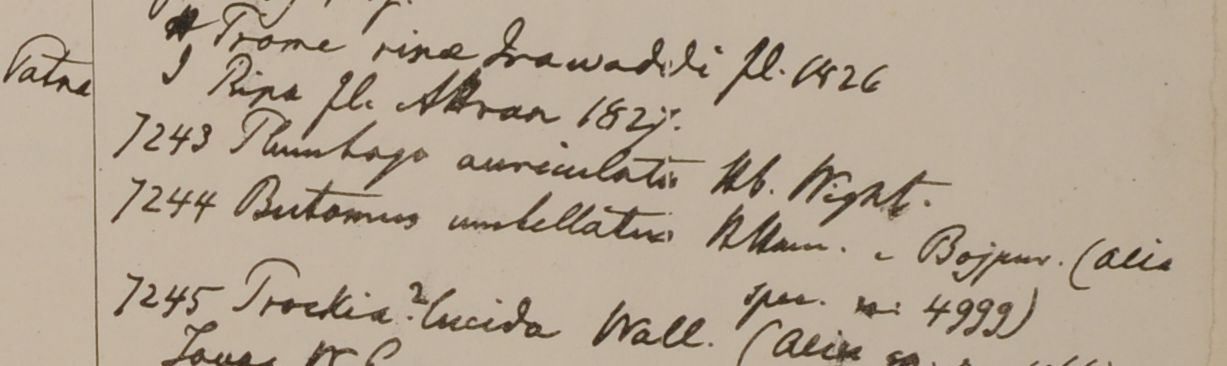 Patna
H Prome ripae Irawaddi fl. 1826
I Ripa fl. Attran 1827.
7243 Plumbago auriculata Hb. Wight.
7244 Butomus umbellatus H. Ham. e Bojpur. (alia
spec. n: 4999)
7245 Trockia? lucida Wall. (alia